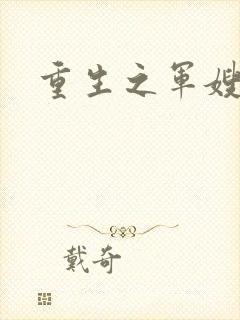 重生之军嫂
戴奇